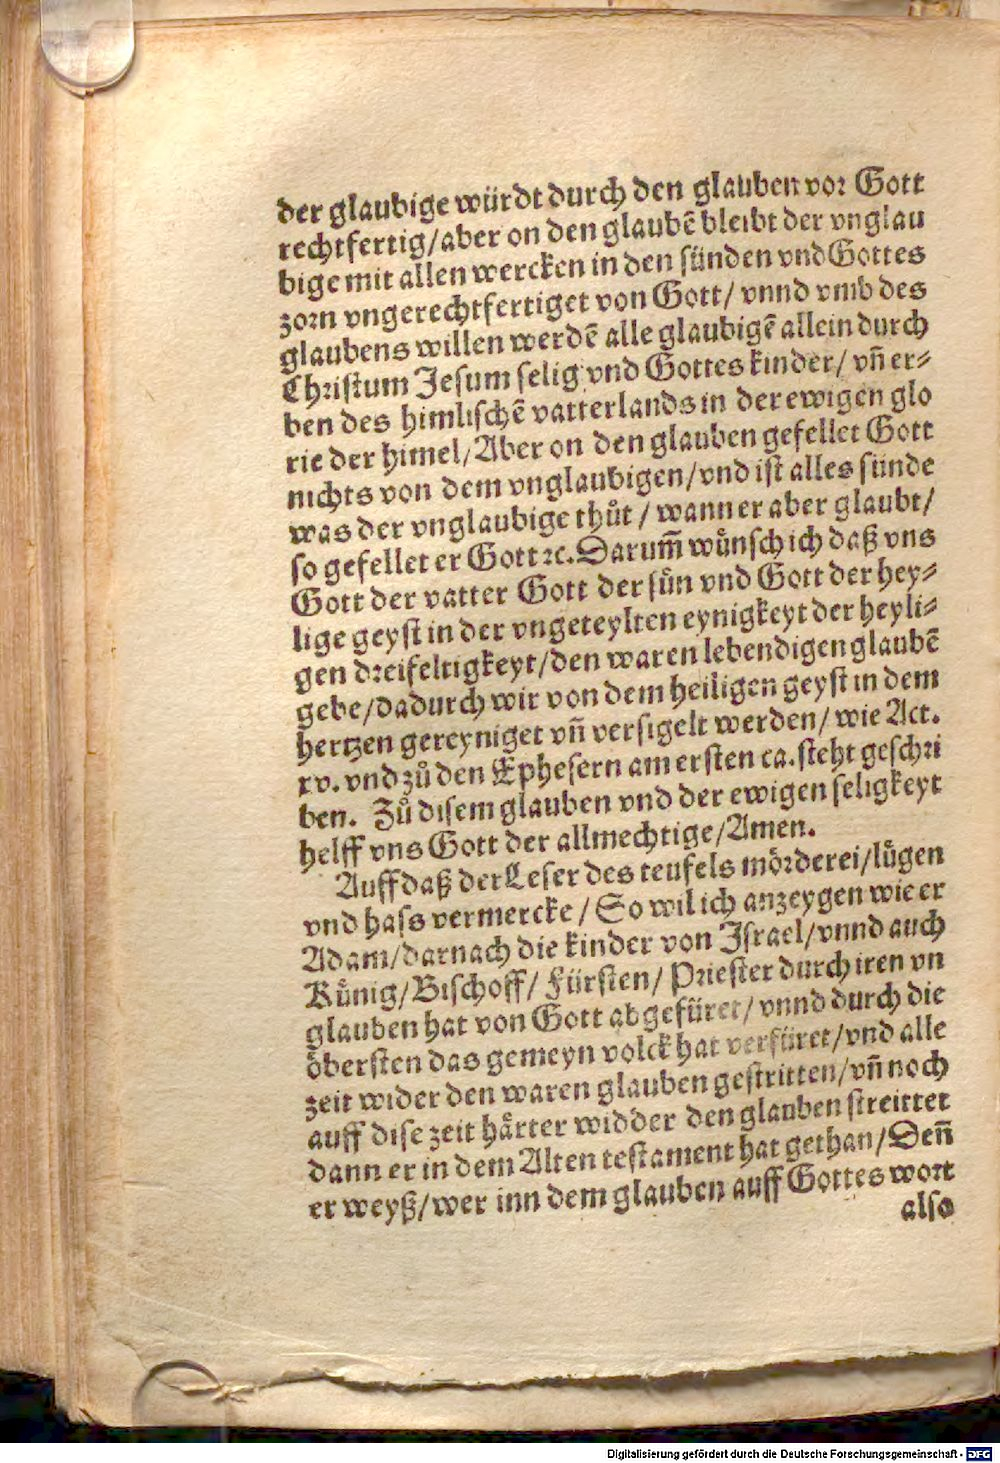 der glaubige würdt durch den glauben vor Gott
rechtfertig/aber on den glaubē bleibt der vnglau
bige mit allen wercken in den sünden vnd Gottes
zorn vngerechtfertiget von Gott/ vnnd vmb des
glaubens willen werdē alle glaubigē allein durch
Christum Jesum selig vnd Gottes kinder/ vn̄ er⸗
ben des himlischē vatterlands in der ewigen glo
rie der himel/Aber on den glauben gefellet Gott
nichts von dem vnglaubigen/vnd ist alles sünde
was der vnglaubige thůt/ wann er aber glaubt/
so gefellet er Gott ꝛc. Darum̄ wünsch ich daß vns
Gott der vatter Gott der sůn vnd Gott der hey⸗
lige geyst in der vngeteylten eynigkeyt der heyli⸗
gen dreifeltigkeyt/den waren lebendigen glaubē
gebe/dadurch wir von dem heiligen geyst in dem
hertzen gereyniget vn̄ versigelt werden/ wie Act.
xv. vnd zů den Ephesern am ersten ca. steht geschri
ben. Zů disem glauben vnd der ewigen seligkeyt
helff vns Gott der allmechtige/Amen.
Auff daß der Leser des teufels mörderei/lügen
vnd hass vermercke/ So wil ich anzeygen wie er
Adam/darnach die kinder von Israel/vnnd auch
Künig/Bischoff/ Fürsten/ Priester durch iren vn
glauben hat von Gott abgefüret/ vnnd durch die
öbersten das gemeyn volck hat verfüret/vnd alle
zeit wider den waren glauben gestritten/vn̄ noch
auff dise zeit härter widder den glauben streittet
dann er in dem Alten testament hat gethan/Den̄
er weyß/wer inn dem glauben auff Gottes wort
also
Digitalisierung gefördert durch die Deutsche Forschungsgemeinschaft - DFG